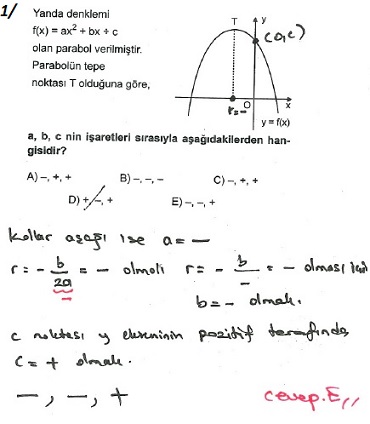 1/
Yanda denklemi
f(x) = ax² + bx + c
olan parabol verilmiştir.
Parabolün tepe
noktası T olduğuna göre,
T
y
(0,c)
O
x
r=-
y = f(x)
a, b, c nin işaretleri sırasıyla aşağıdakilerden han-
gisidir?
A) –, +, +
B) –, –, –
C) –, +, +
D) +, –, +
E) –, –, +
Kollar aşağı ise a = –
r = - b/2a = – olmalı r = - b/– = – olması için
b = – olmalı.
c noktası y ekseninin pozitif tarafında
c = + olmalı.
–, –, +
cevap.E,,